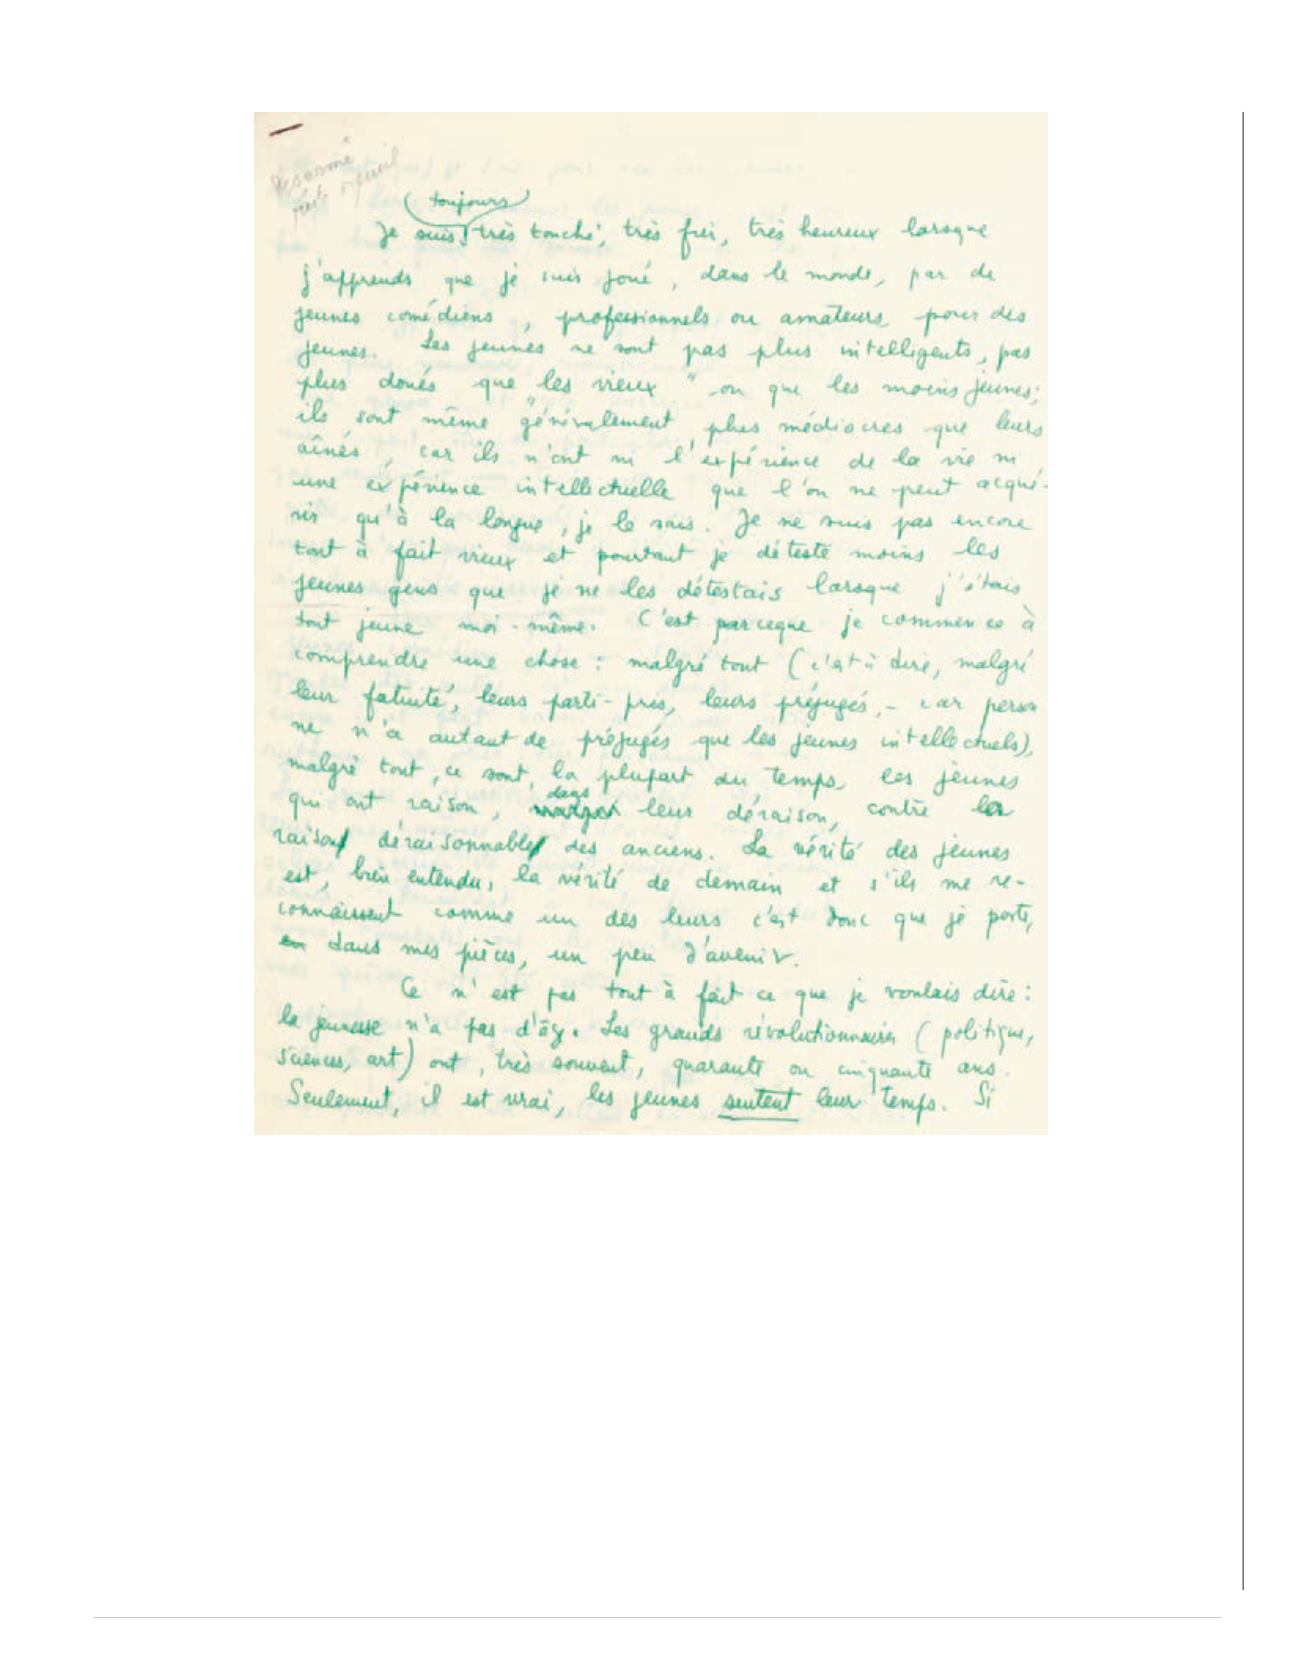 toujours
Je suis très touché, très fier, très heureux lorsque
j'apprends que je suis joué, dans le monde, par de
jeunes comédiens, professionnels ou amateurs pour des
jeunes. Les jeunes ne sont pas plus intelligents, pas
plus doués que "les vieux" ou que les moins jeunes;
ils sont même généralement plus médiocres que leurs
aînés, car ils n'ont ni l'expérience de la vie ni
une expérience intellectuelle que l'on ne peut acqué-
rir qu'à la longue, je le sais. Je ne suis pas encore
tout à fait vieux et pourtant je déteste moins les
jeunes gens que je ne les détestais lorsque j'étais
tout jeune moi-même. C'est parceque je commence à
comprendre une chose: malgré tout (c'est à dire, malgré
leur fatuité, leurs parti-pris, leurs préjugés, - car person
ne n'a autant de préjugés que les jeunes intellectuels),
malgré tout, ce sont, la plupart du temps, les jeunes
qui ont raison, dans leur déraison, contre la
raison déraisonnable des anciens. La vérité des jeunes
est, bien entendu, la vérité de demain et s'ils me re-
connaissent comme un des leurs c'est donc que je porte,
en dans mes pièces, un peu d'avenir.
Ce n'est pas tout à fait ce que je voulais dire:
la jeunesse n'a pas d'âge. Les grands révolutionnaires (politique,
sciences, art) ont, très souvent, quarante ou cinquante ans.
Seulement, il est vrai, les jeunes sentent leur temps. Si